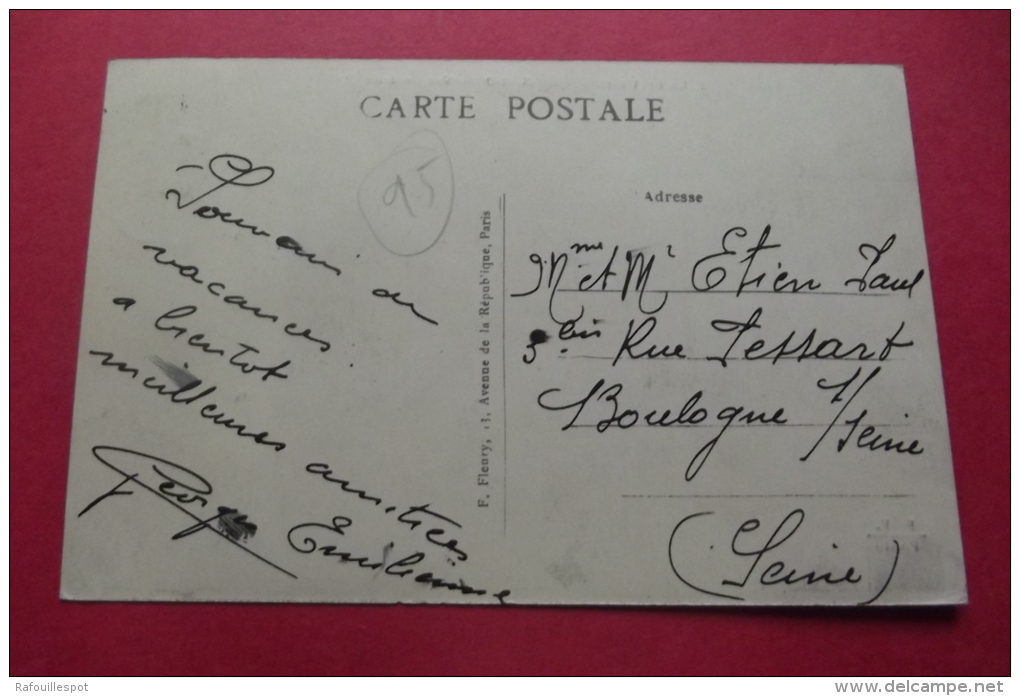 CARTE POSTALE
95
Souvenir de
vacances
a bientot
meilleures amitiées
Georges
Emilienne
F. Fleury, 13, Avenue de la République, Paris
Adresse
Mme et Mr Etien Paul
3 bis Rue Tessart
Boulogne s/Seine
(Seine)
Rafouillespot
www.delcampe.net